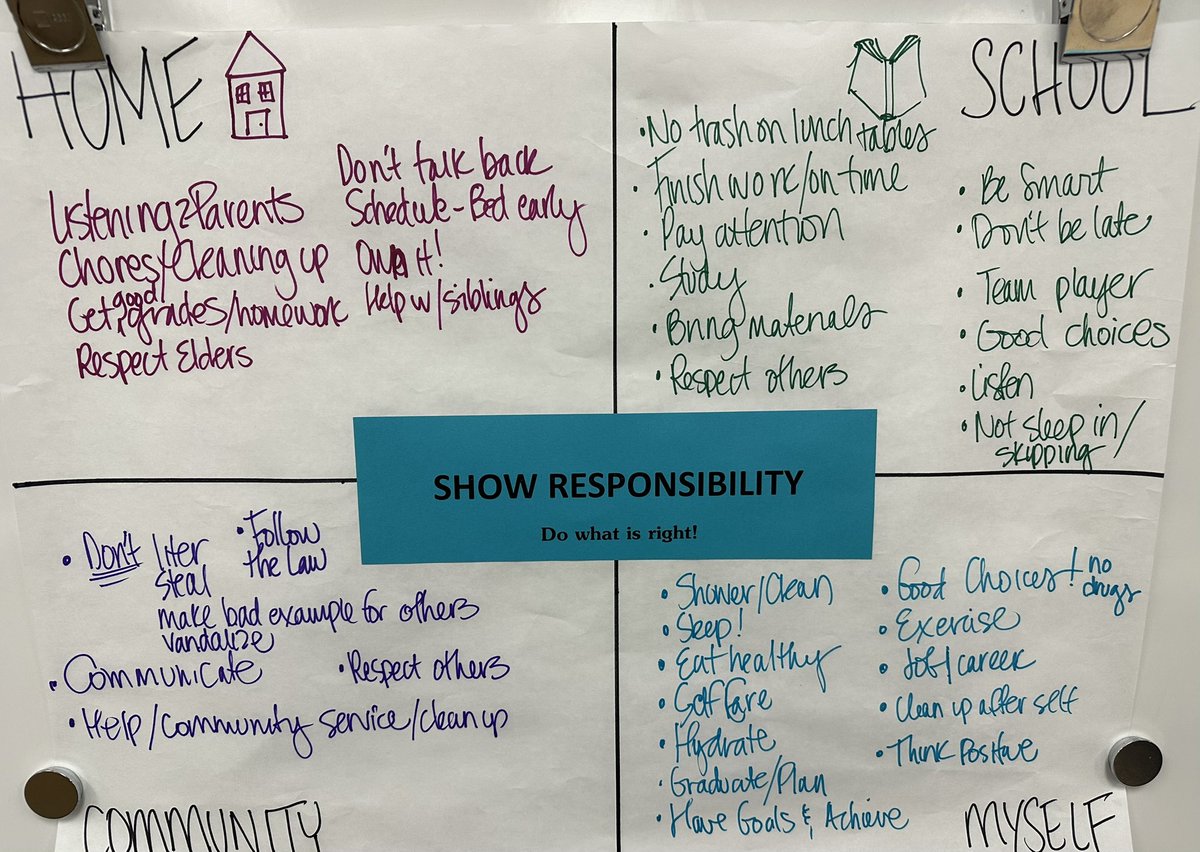 HOME
Listening 2 Parents
Chores/Cleaning up
Get good grades/homework
Respect Elders
Don't talk back
Schedule - Bed early
Own it!
Help w/siblings
SCHOOL
• No trash on lunch tables
• Finish work/on time
• Pay attention
• Study
• Bring materials
• Respect others
• Be Smart
• Don't be late
• Team player
• Good choices
• Listen
• Not sleep in/
skipping
SHOW RESPONSIBILITY
Do what is right!
• Don't liter
steal
make bad example for others
vandalize
• Follow
the Law
• Communicate
• Respect others
• Help/Community service/clean up
COMMUNITY
• Shower/Clean
• Sleep!
• Eat healthy
• Self Care
• Hydrate
• Graduate/Plan
• Have Goals & Achieve
• Good Choices! no
drugs
• Exercise
• Job/career
• Clean up after self
• Think Positive
MYSELF